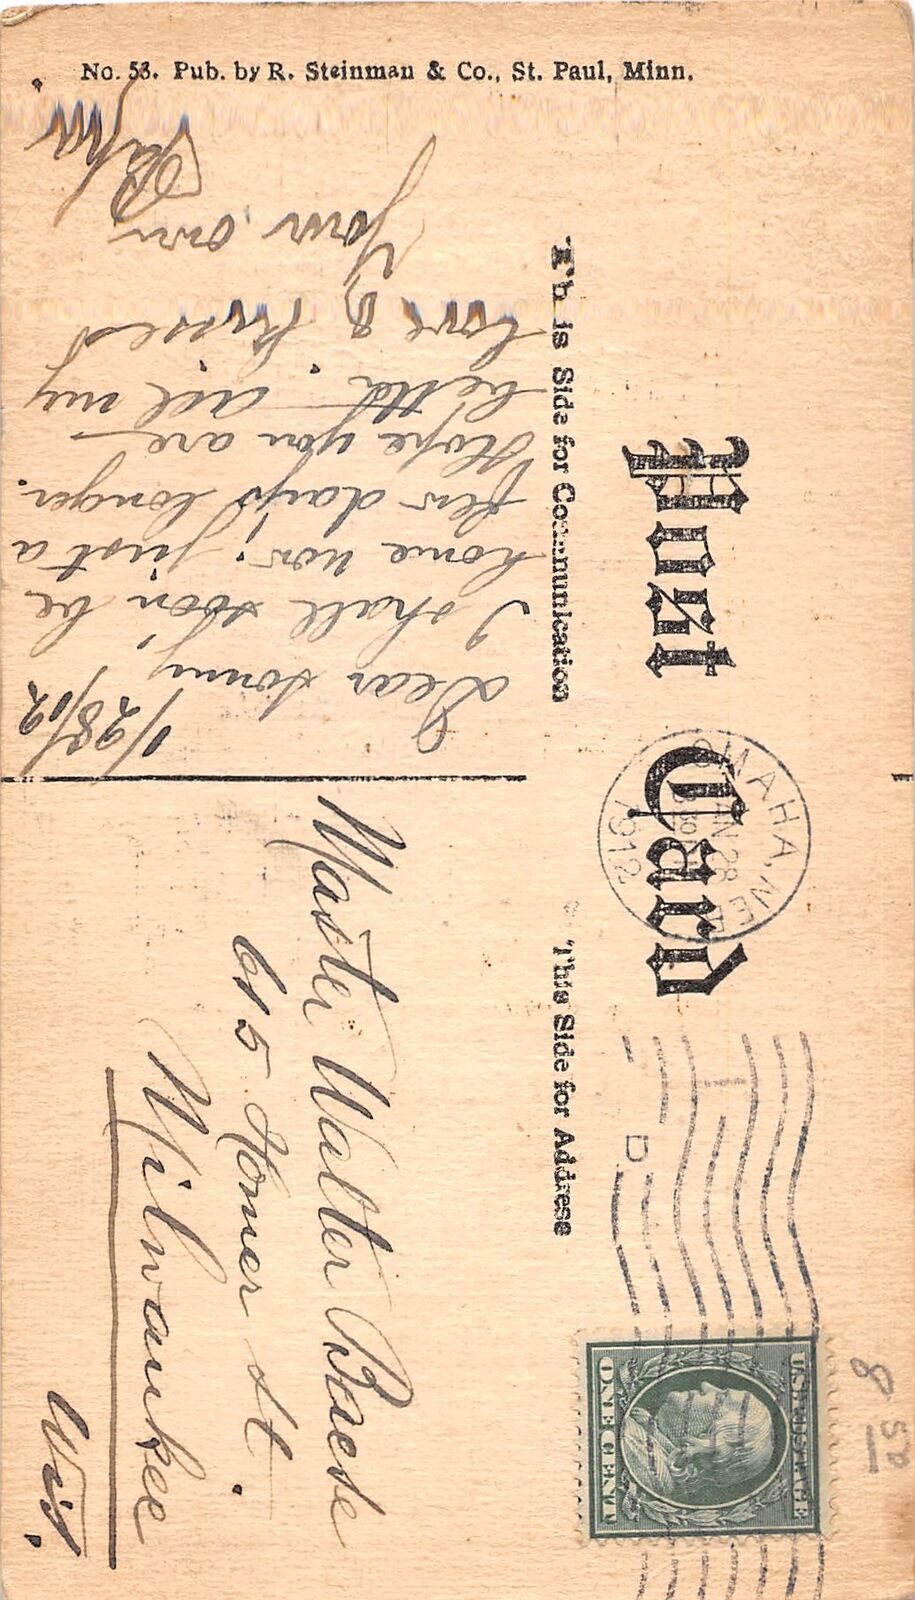 No. 53. Pub. by R. Steinman & Co., St. Paul, Minn.
Post Card
This Side for Communication
This Side for Address
OMAHA, NEB
JAN 28
1912
D
U.S. POSTAGE
ONE CENT
8 50
1/28/12
Dear Sonny
I shall soon be
home now! Just a
few days longer.
Hope you are
better all my
love & kisses
Your own
Papa
Master Walter Baese
615 Homer St.
Milwaukee
Wis.